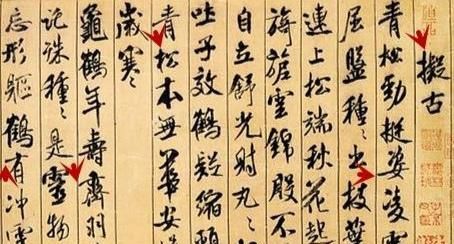 擬古
青松勁挺姿凌霄
屈盤種〻出枝葉
連上松端秋花起
旖旎雲錦殷不
自立舒光射丸〻
吐子效鶴疑縮頸
青松本無華安得
歲寒〻
龜鶴年壽齊羽
託殊種〻是靈物
忘形軀鶴有沖霄